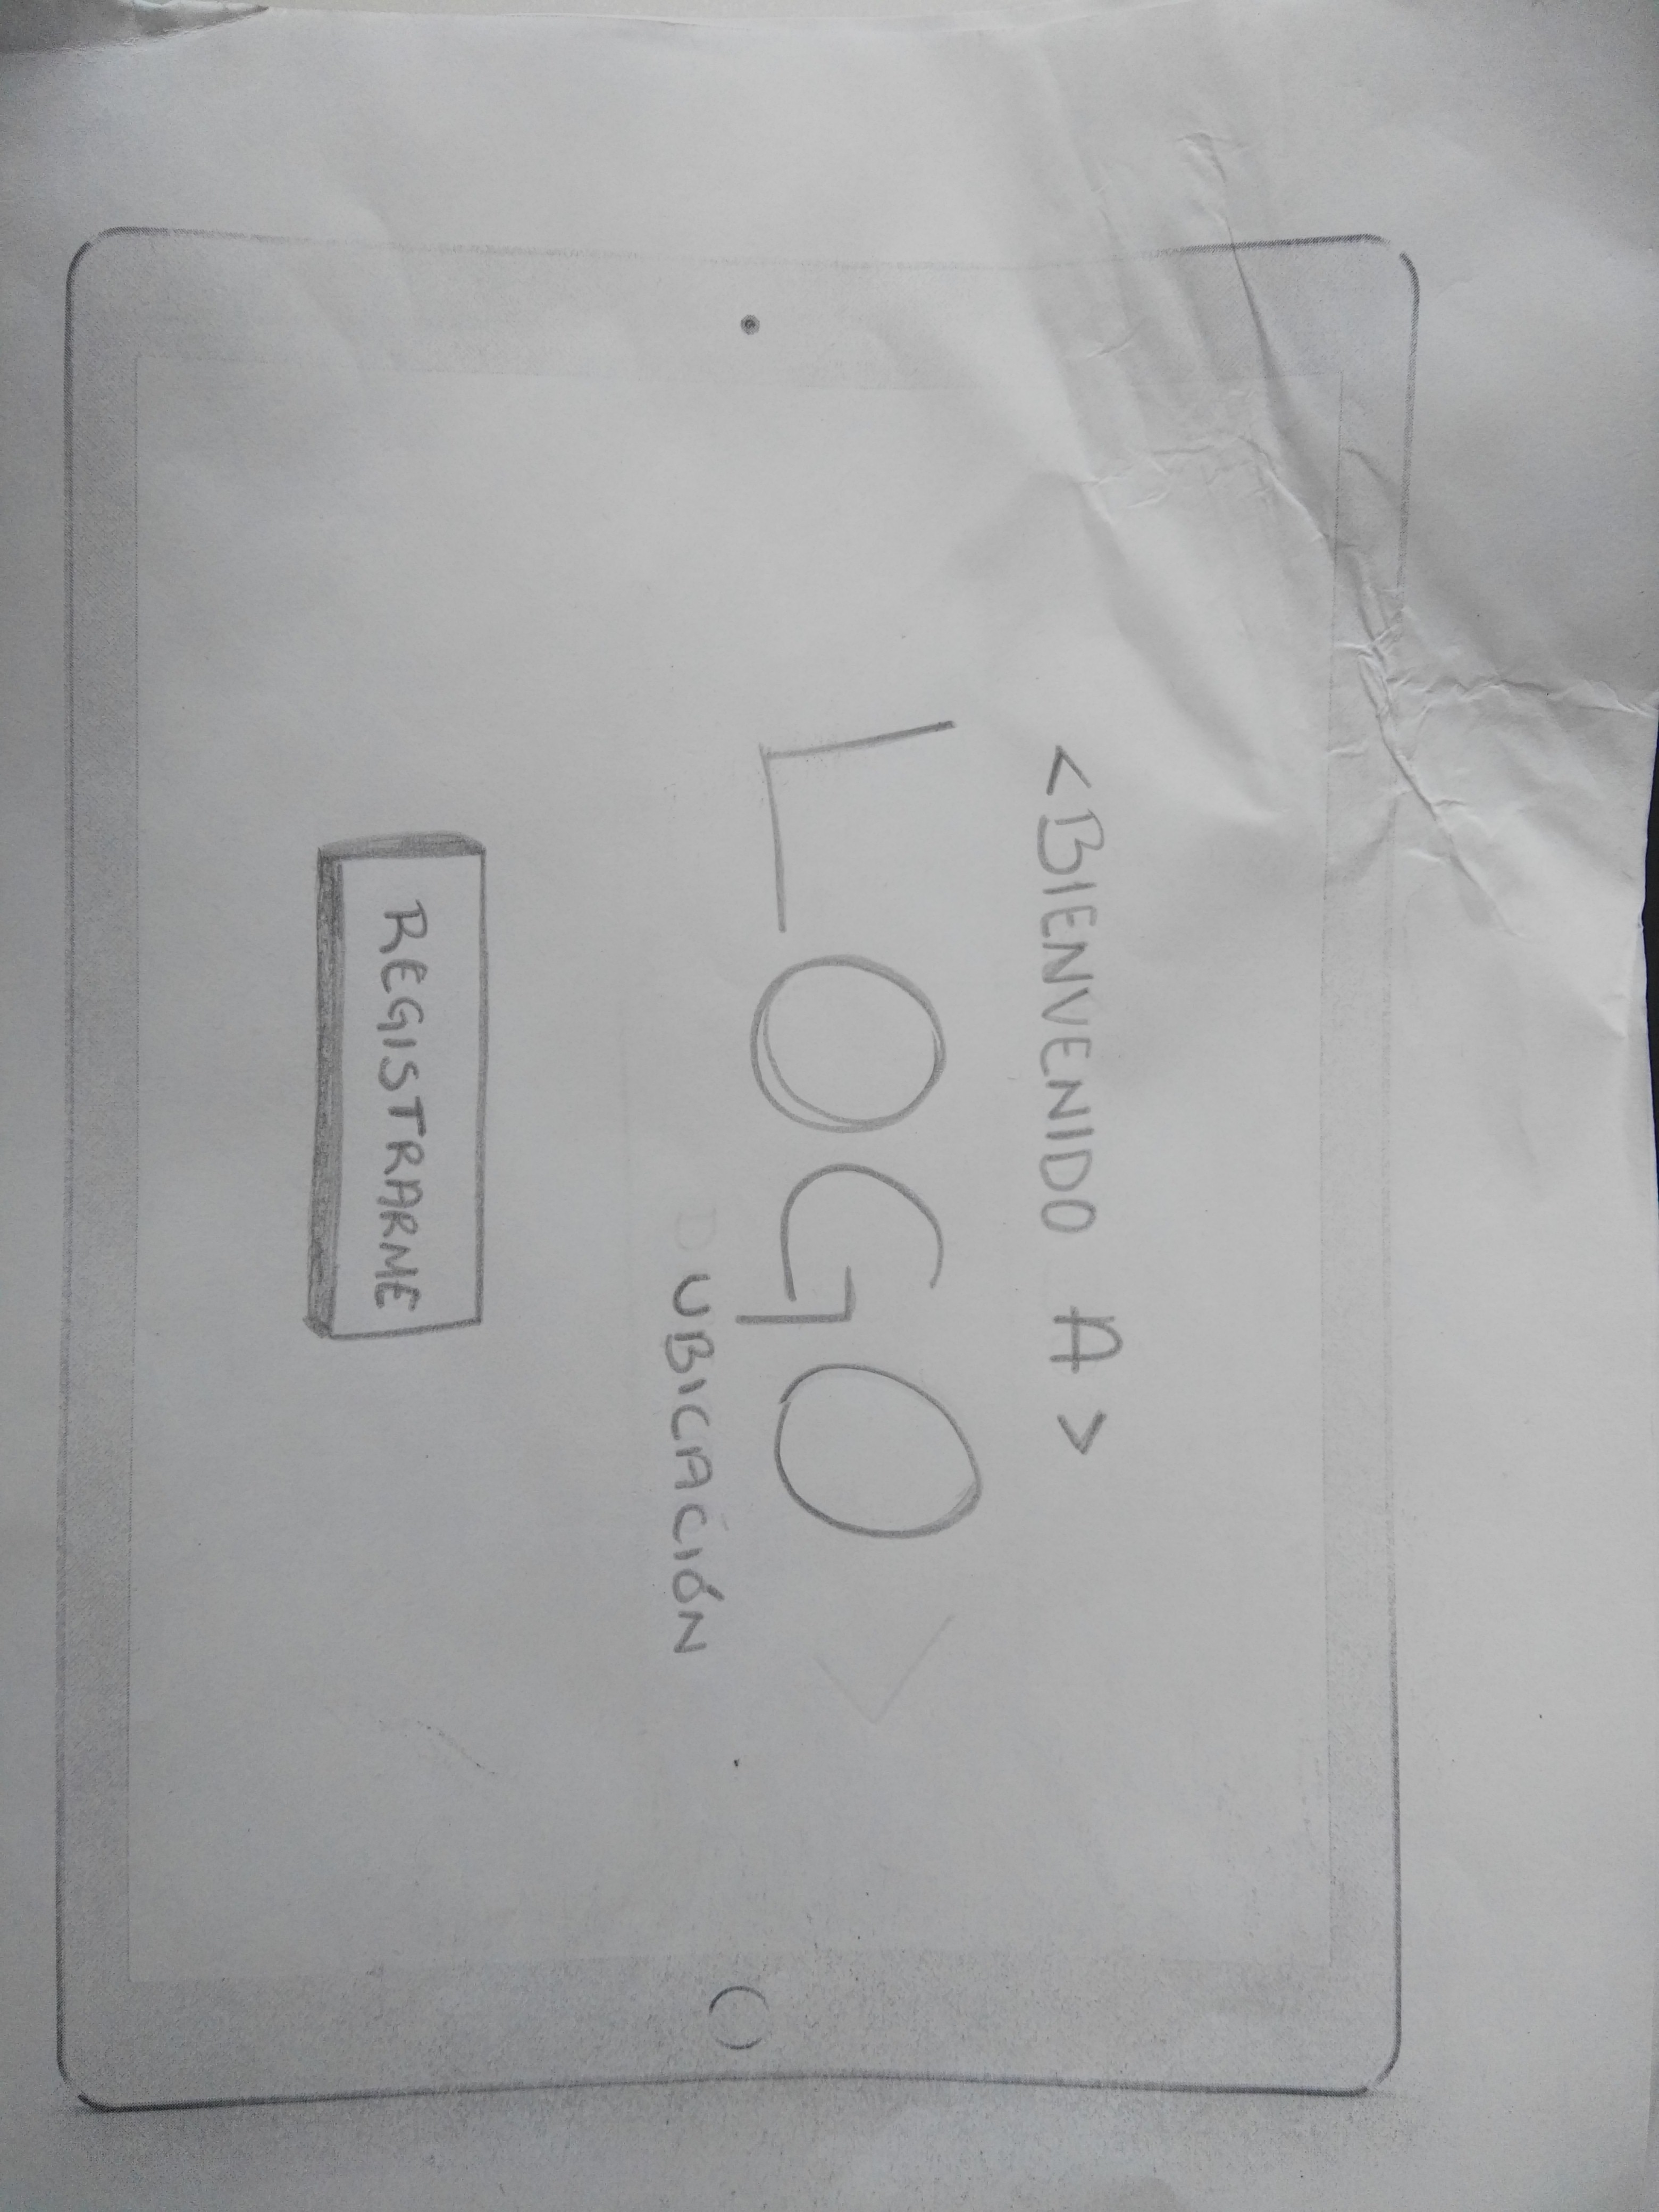 <BIENVENIDO A>
LOGO
UBICACIÓN
REGISTRARME